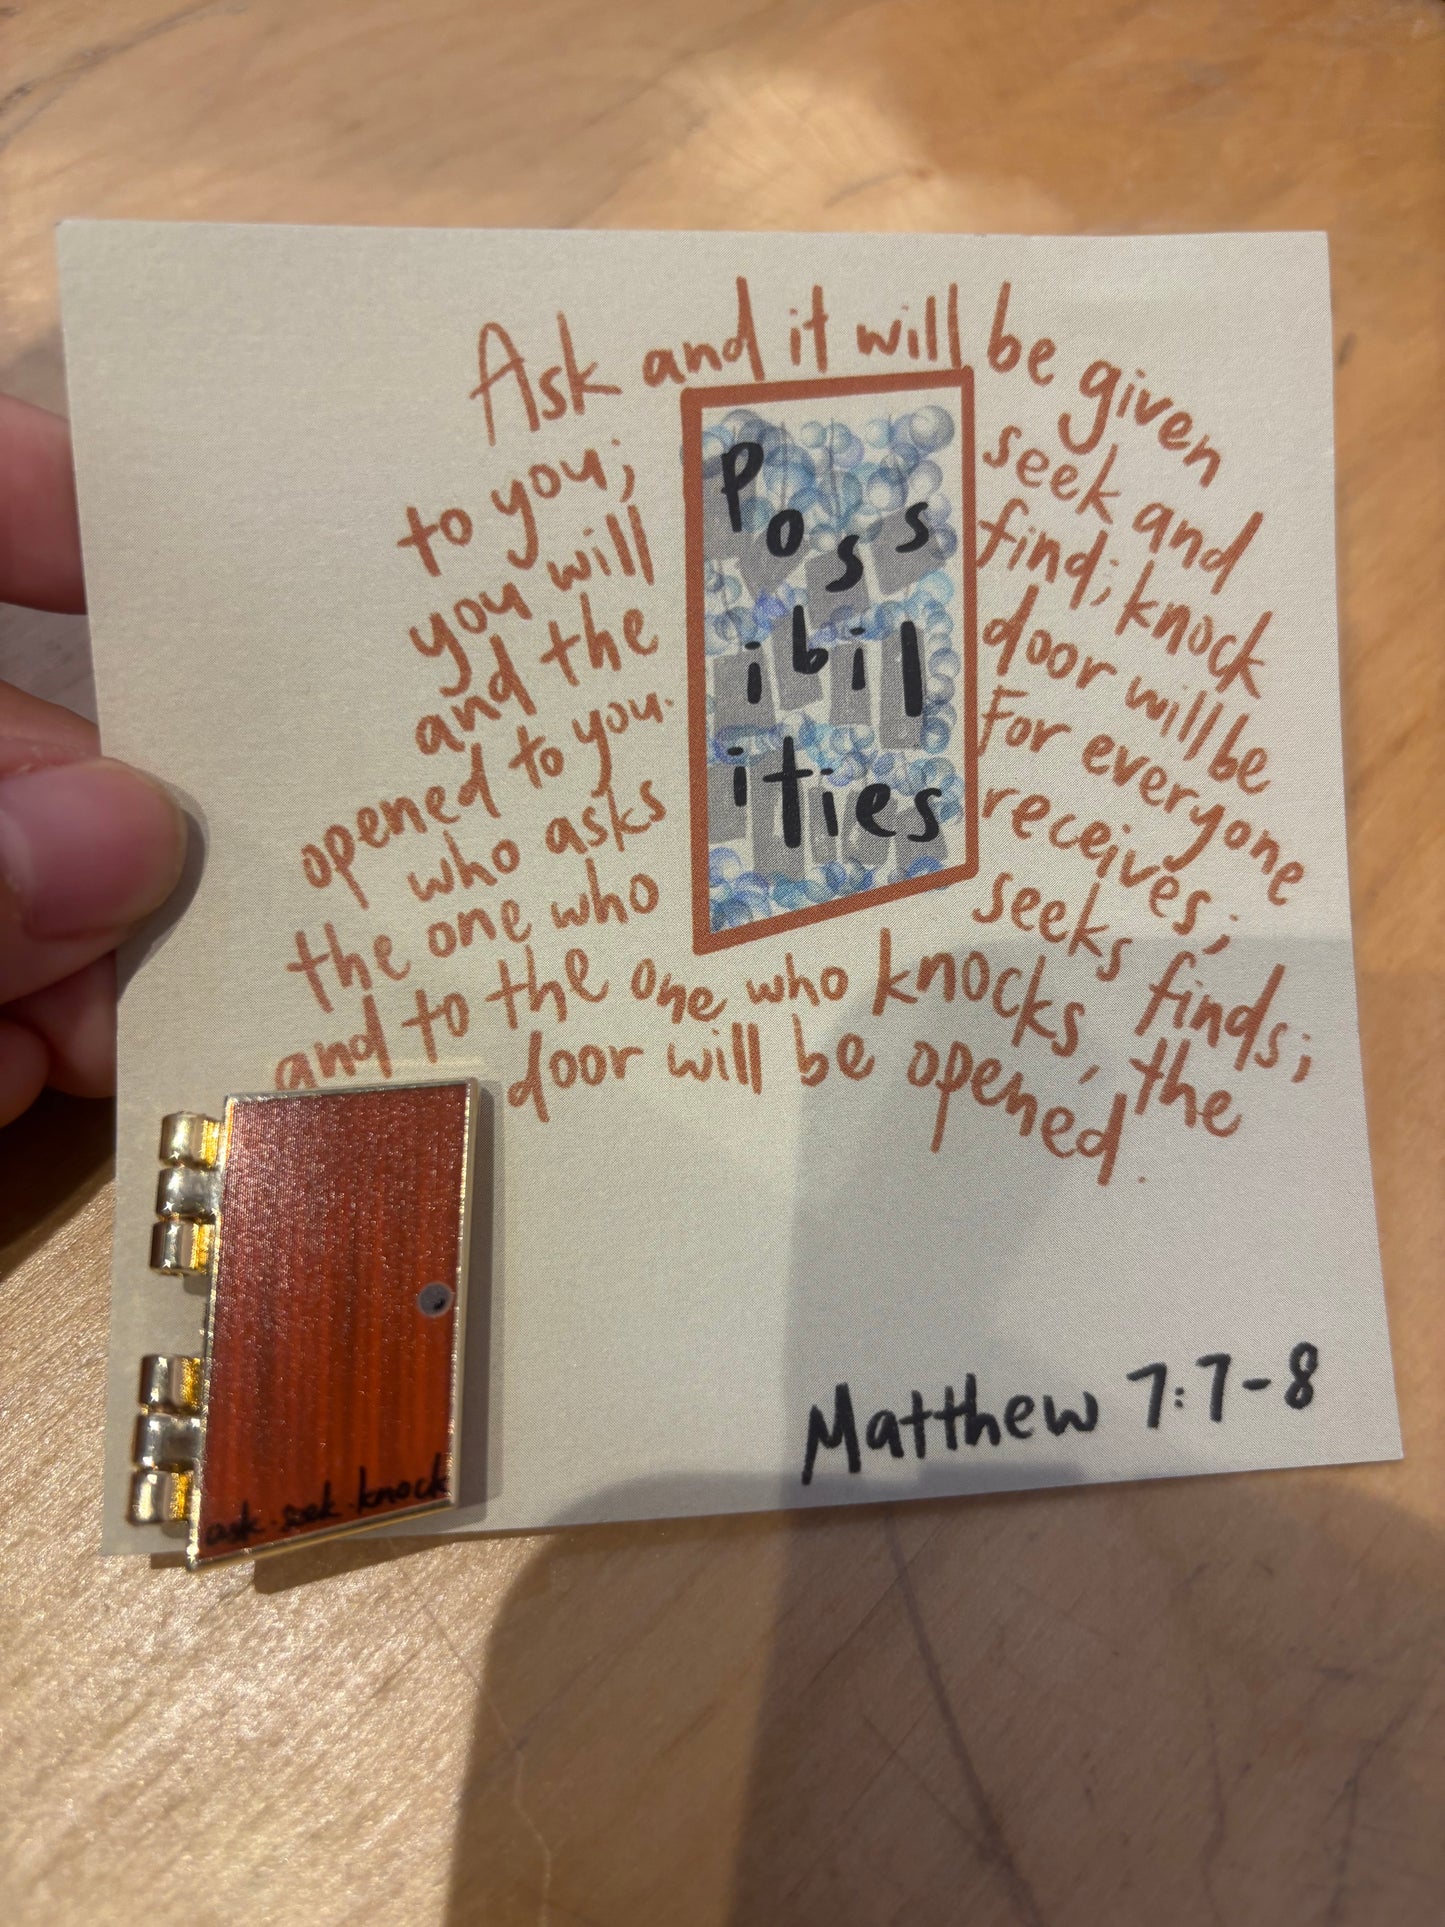 Ask and it will be given
to you; seek and
you will find; knock
and the door will be
opened to you. For everyone
who asks receives;
the one who seeks finds;
and to the one who knocks, the
door will be opened.
Poss
ibil
ities
ask. seek. knock
Matthew 7:7-8